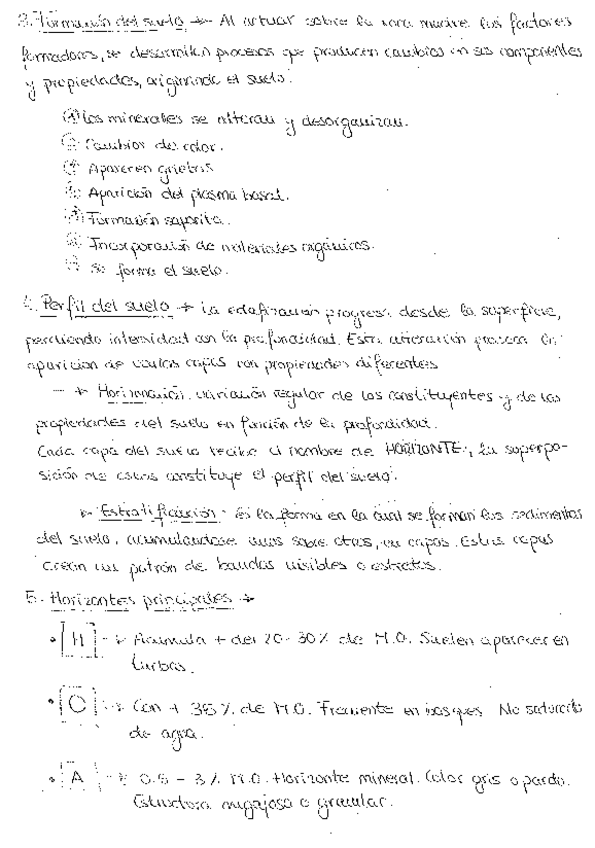 3. Formación del suelo → Al actuar sobre la roca madre los factores
formadores, se desarrollan procesos que producen cambios en sus componentes
y propiedades, originando el suelo.
Los minerales se alteran y desorganizan.
Cambios de color.
Aparecen grietas
Aparición del plasma basal.
Formación saprolita.
Incorporación de materiales orgánicos.
Se forma el suelo.
4. Perfil del suelo → La edafización progresa desde la superficie,
perdiendo intensidad con la profundidad. Esta alteración provoca la
aparición de varias capas con propiedades diferentes
→ Horizonación: variación regular de los constituyentes y de las
propiedades del suelo en función de la profundidad.
Cada capa del suelo recibe el nombre de HORIZONTE, la superpo-
sición de estos constituye el perfil del suelo.
→ Estratificación: es la forma en la cual se forman los sedimentos
del suelo, acumulandose unos sobre otros, en capas. Estas capas
crean un patrón de bandas visibles o estratos.
5. Horizontes principales →
• H → Acumula + del 20-30% de M.O. Suelen aparecer en
turbas.
• O → Con + 35% de M.O. Frecuente en bosques. No saturado
de agua.
• A → 0.5 - 3% M.O. Horizonte mineral. Color gris o pardo.
Estructura migajosa o granular.